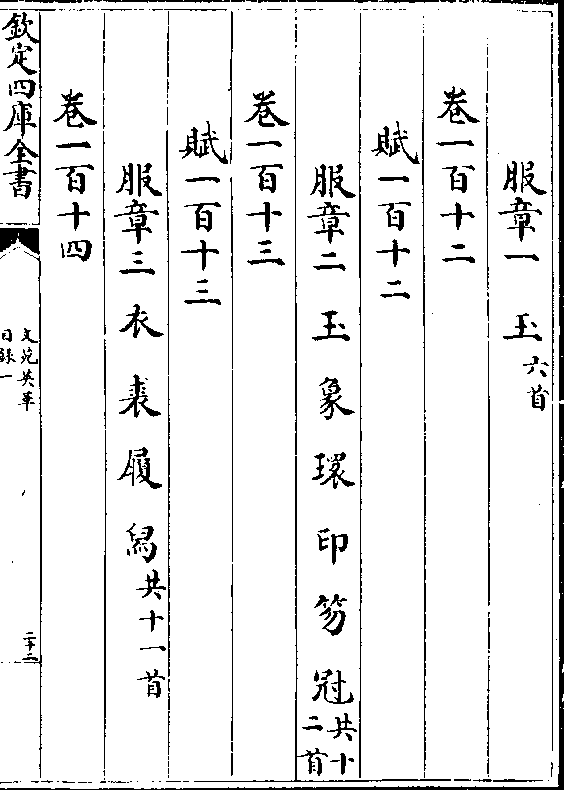 服章一 玉六首
卷一百十二
賦一百十二
服章二 玉 象 環 印 笏 冠共十二首
卷一百十三
賦一百十三
服章三 衣 裘 履 舄共十一首
卷一百十四
欽定四庫全書
文苑英華
目錄一
二十二